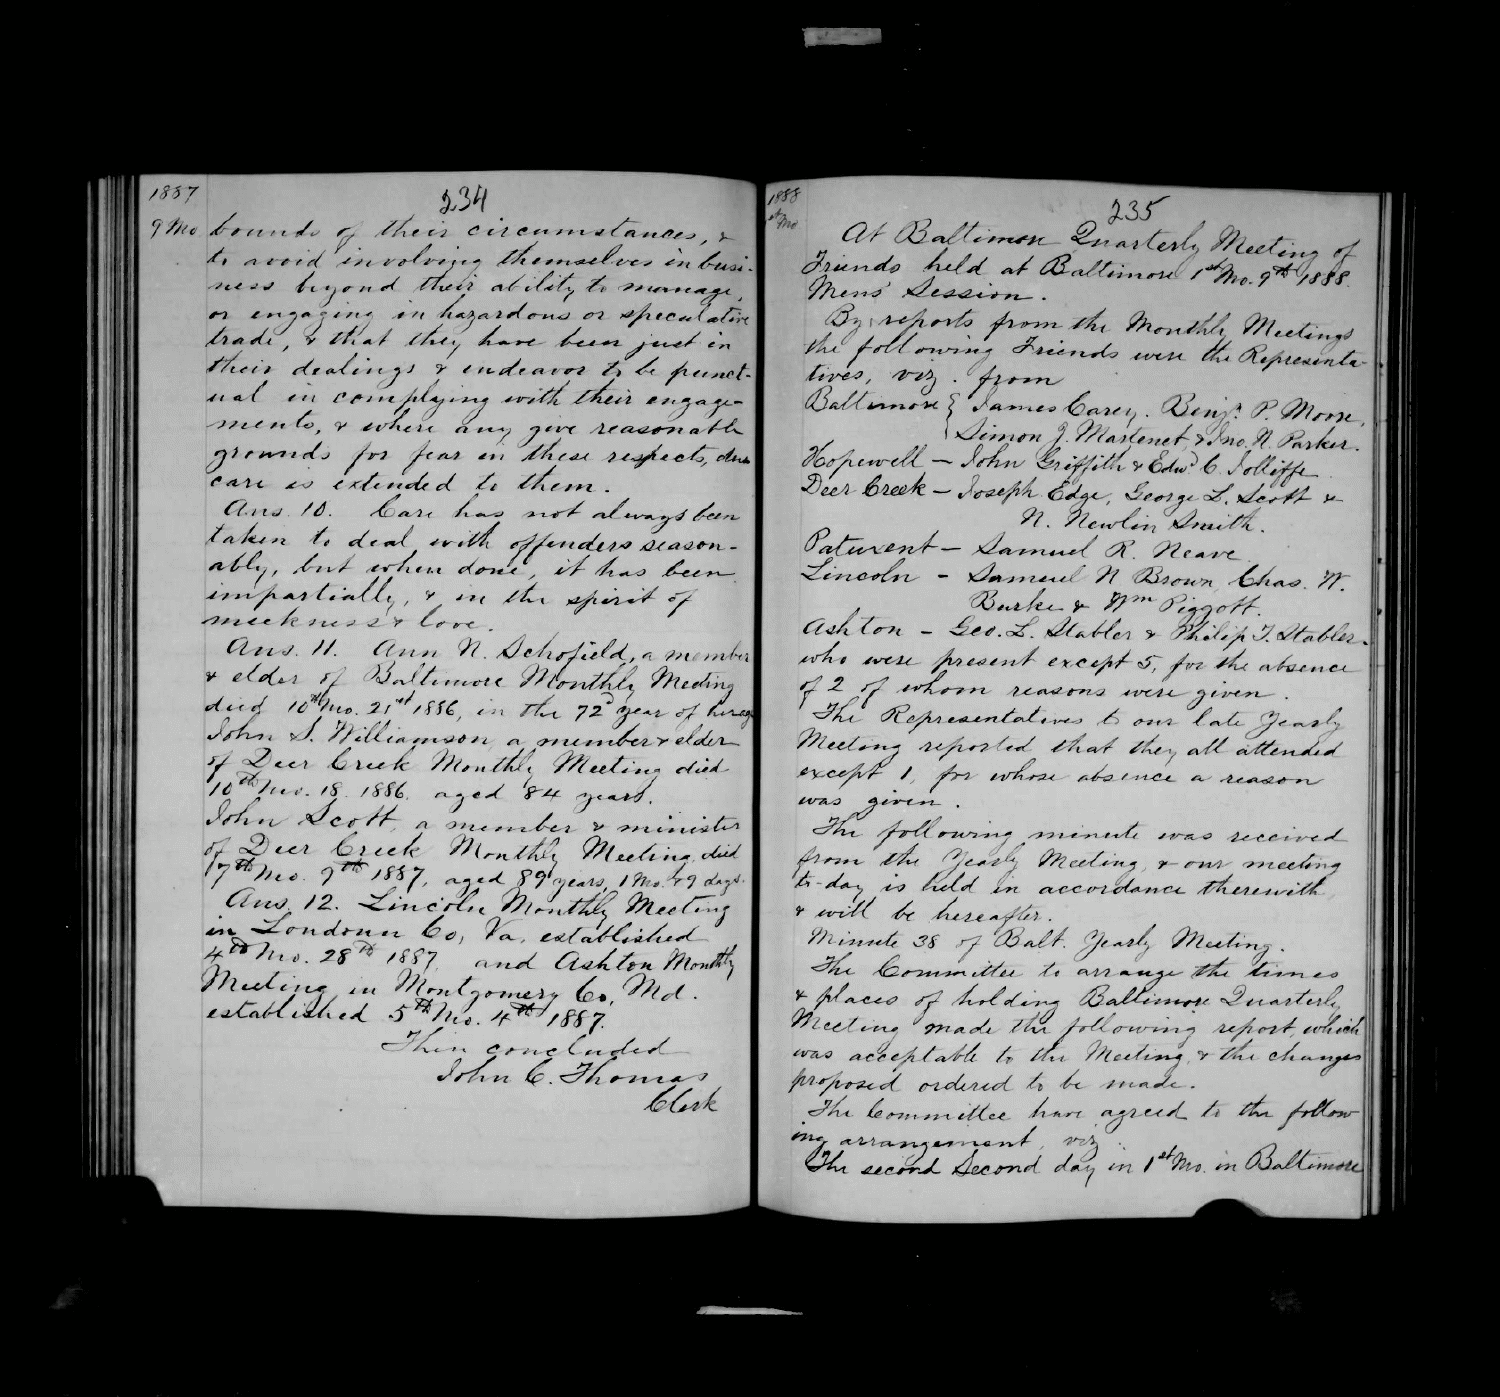 1887
234
9 Mo
bounds of their circumstances, &
to avoid involving themselves in busi-
ness beyond their ability to manage,
or engaging in hazardous or speculative
trade, & that they have been just in
their dealings & endeavor to be punct-
ual in complying with their engage-
ments, & where any give reasonable
grounds for fear in these respects, due
care is extended to them.
Ans. 10. Care has not always been
taken to deal with offenders season-
ably, but when done, it has been
impartially, & in the spirit of
meekness & love.
Ans. 11. Ann N. Schofield, a member
& elder of Baltimore Monthly Meeting
died 10th Mo. 21st 1886, in the 72d year of her age
John S. Williamson, a member & elder
of Deer Creek Monthly Meeting died
10th Mo. 18. 1886. aged 84 years.
John Scott, a member & minister
of Deer Creek Monthly Meeting, died
7th Mo. 9th 1887, aged 89 years, 1 Mo. & 9 days.
Ans. 12. Lincoln Monthly Meeting
in Loudoun Co, Va. established
4th Mo. 28th 1887. and Ashton Monthly
Meeting in Montgomery Co, Md.
established 5th Mo. 4th 1887.
Then concluded
John C. Thomas
Clerk
1888
1st Mo
235
At Baltimore Quarterly Meeting of
Friends held at Baltimore 1st Mo. 9th 1888.
Mens' Session.
By reports from the Monthly Meetings
the following Friends were the Representa-
tives, viz. from
Baltimore { James Carey, Benj. P. Moore,
Simon J. Martenet, & Jno. N. Parker.
Hopewell - John Griffith & Edwd C. Jolliffe
Deer Creek - Joseph Edge, George L. Scott &
N. Newlin Smith.
Patuxent - Samuel R. Neave
Lincoln - Samuel N Brown, Chas. W.
Burke & Wm Piggott.
Ashton - Geo. L. Stabler & Philip T. Stabler.
who were present except 5, for the absence
of 2 of whom reasons were given.
The Representatives to our late Yearly
Meeting reported that they all attended
except 1, for whose absence a reason
was given.
The following minute was received
from the Yearly Meeting, & our meeting
to-day is held in accordance therewith
& will be hereafter.
Minute 38 of Balt. Yearly Meeting.
The Committee to arrange the times
& places of holding Baltimore Quarterly
Meeting made the following report, which
was acceptable to the Meeting, & the changes
proposed ordered to be made.
The Committee have agreed to the follow-
ing arrangement, viz.
The second Second day in 1st Mo. in Baltimore